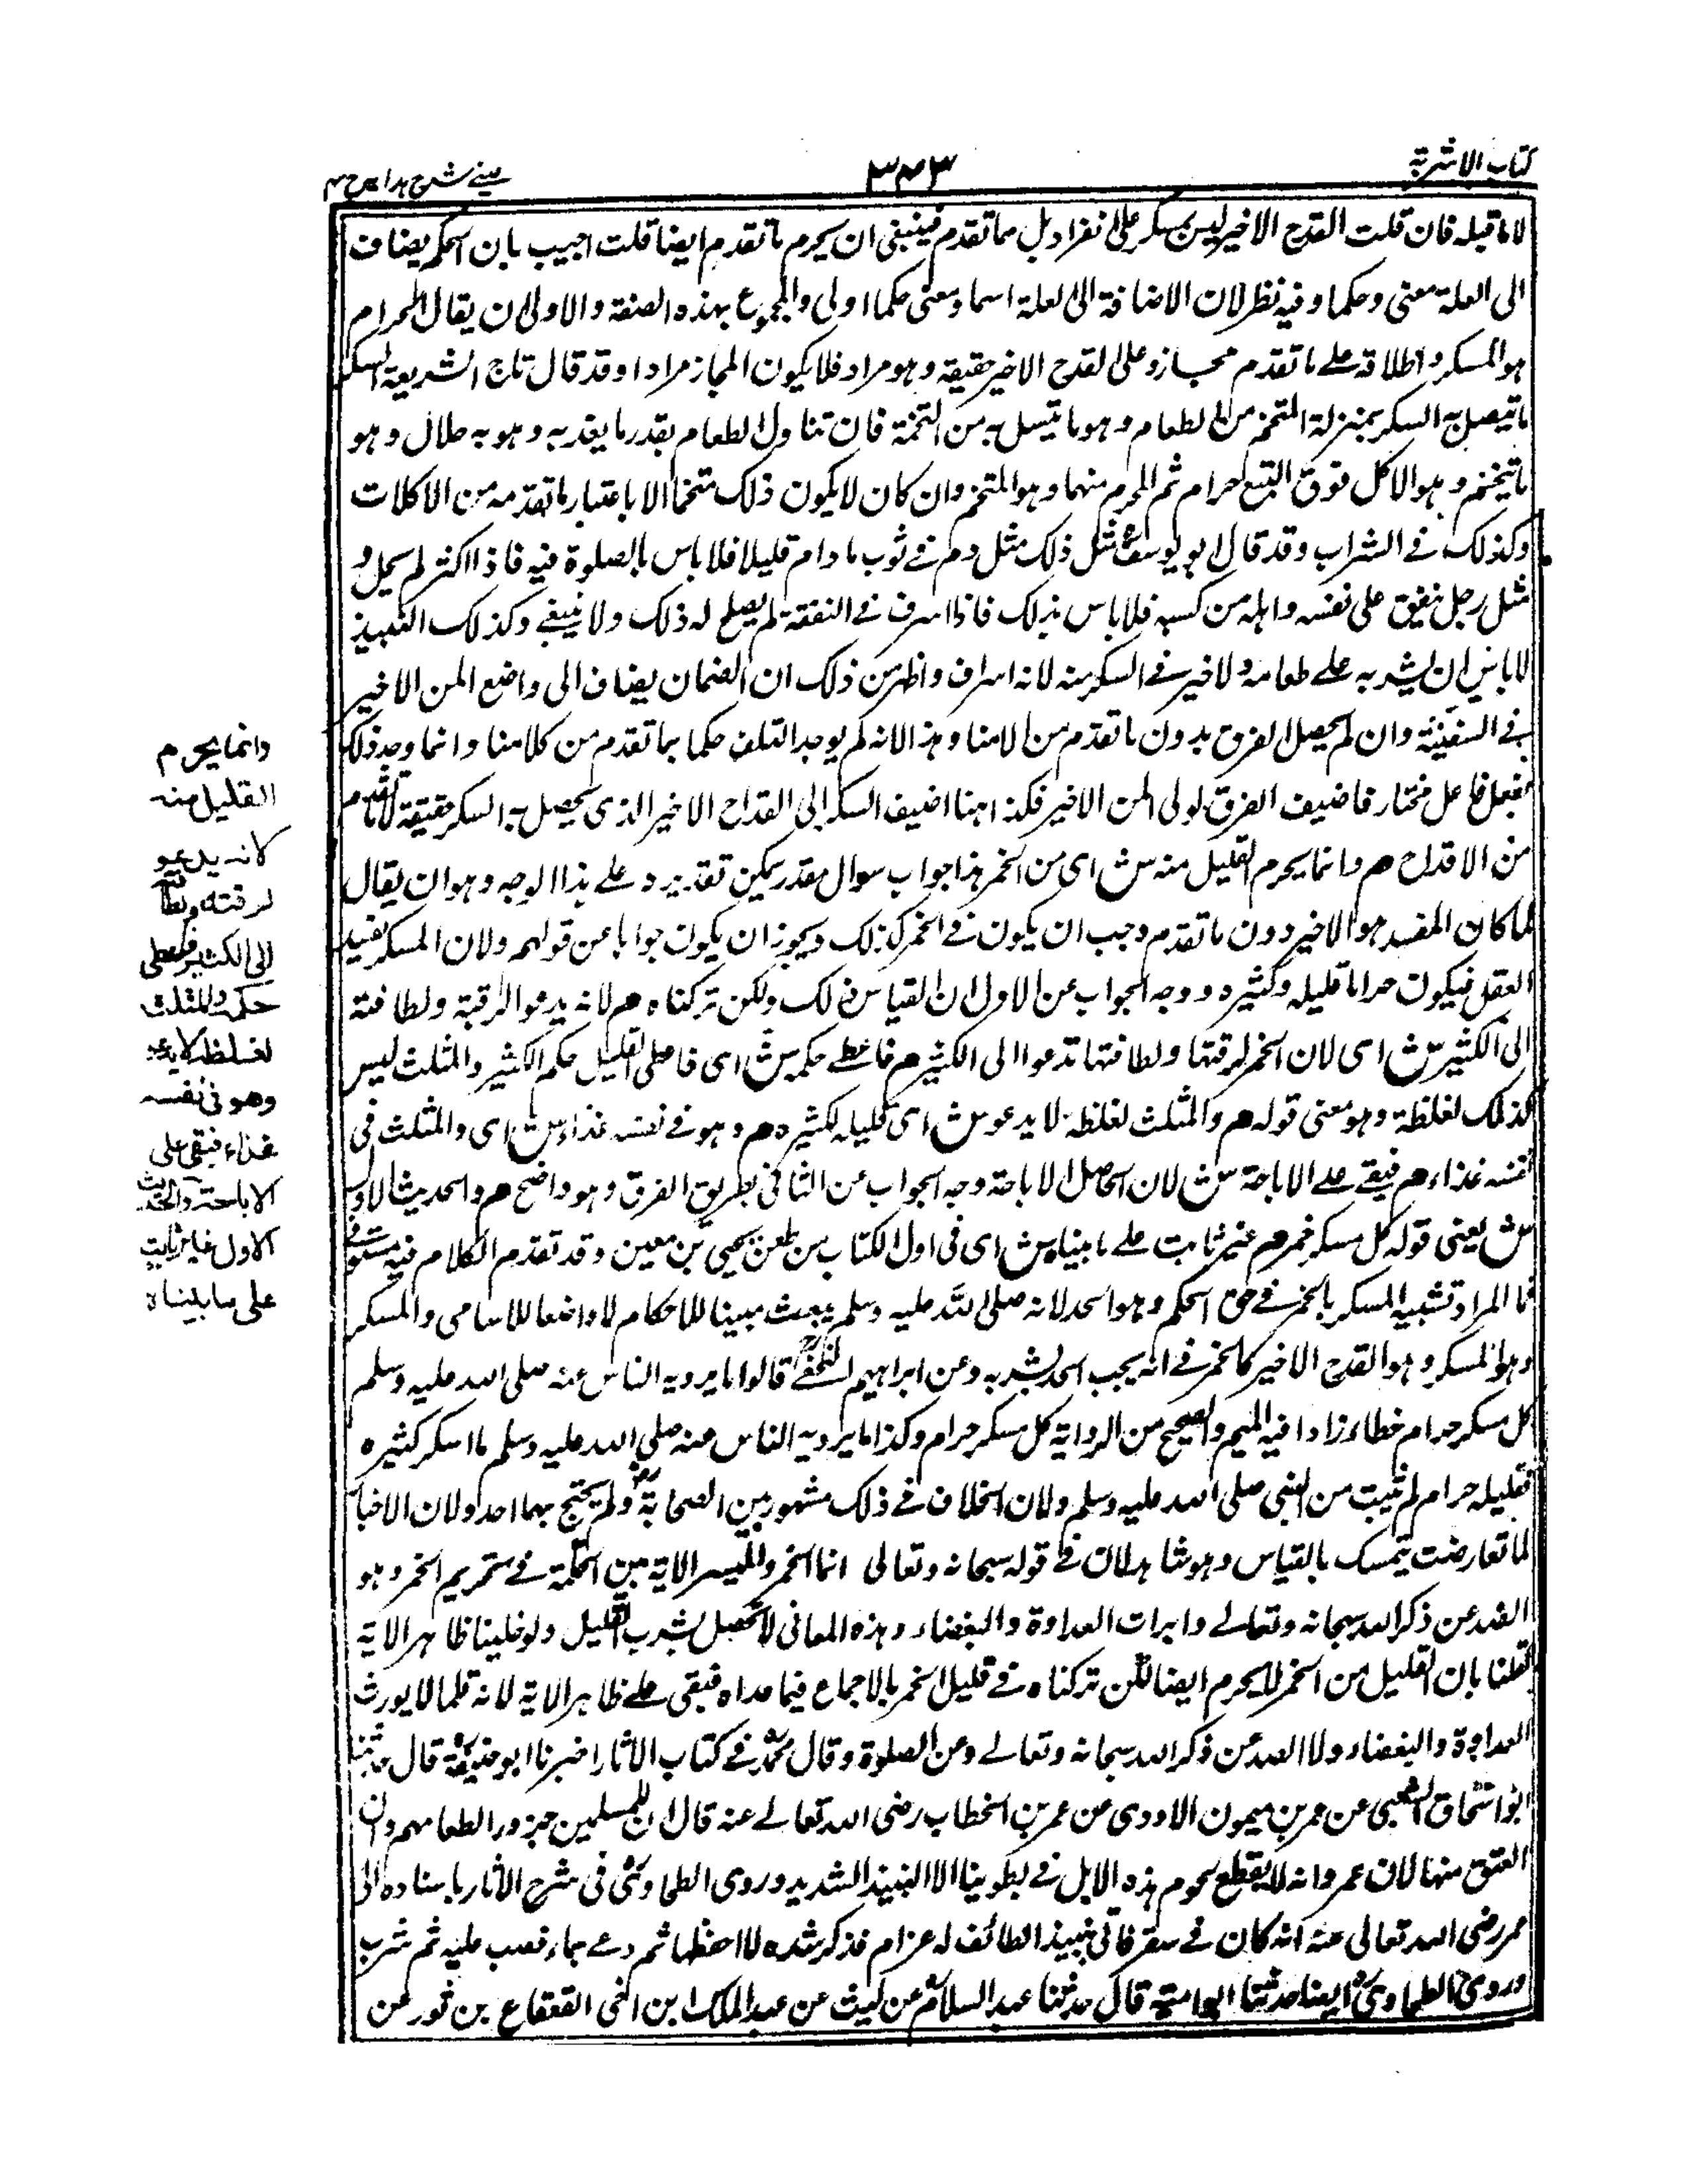 كتاب الاشربة
٣٤٣
عينے شرح هدايه ج ٤
لا ما قبله فان قلت القدح الاخير ليس بمسكر على انفراد بل مما تقدم فينبغى ان يحرم ما تقدم ايضا قلت اجيب بان الحكم يضاف
الى العلة معنى وحكما وفيه نظر لان الاضافة الى العلة اسما ومعنى حكما اولى والمجموع بهذه الصفة والاولى ان يقال الحرام
هو المسكر واطلاقه على ما تقدم مجاز وعلى القدح الاخير حقيقة وهو مراد فلا يكون المجاز مرادا وقد قال تاج الشريعة المسكر
ما يتصل به السكر بمنزلة المتخم من الطعام وهو ما يتسل به من التخمة فان تناول الطعام بقدر ما يغديه وهو به حلال وهو
ما يتخم وهو الاكل فوق الشبع حرام ثم المحرم منهما وهو المتخم وان كان لا يكون ذلك متخما الا باعتبار ما تقدمه من الاكلات
وكذلك فى الشراب وقد قال ابو يوسف مثل ذلك مثل دم فى ثوب ما دام قليلا فلا باس بالصلوة فيه فاذا اكثر لم يحل و
مثل رجل ينفق على نفسه واهله من كسبه فلا باس بذلك فاذا اسرف فى النفقة لم يصلح له ذلك ولا ينبغى وكذلك النبيذ
لا باس ان يشربه على طعامه ولا خير فى السكر منه لانه اسراف واظهر من ذلك ان الضمان يضاف الى واضع المن الاخير
فى السفينة وان لم يحصل الغرق بدون ما تقدم من الامنا وهذا لانه لم يوجد التلف حكما بما تقدم من كلامنا وانما وجد ذلك
بفعل فاعل مختار فاضيف الغرق لولى المن الاخير فكذا ههنا اضيف السكر الى القداح الاخير الذى يحصل به السكر حقيقة لا ما تقدم
من الاقداح هم وانما يحرم القليل منه ش اى من الخمر هذا جواب سوال مقدر يمكن تقديره على هذا الوجه وهو ان يقال
لما كان المفسد هو الاخير دون ما تقدم وجب ان يكون فى الخمر كذلك ويجوز ان يكون جوابا عن قولهم ولان المسكر يفسد
العقل فيكون حراما قليله وكثيره ووجه الجواب عن الاول ان القياس ذلك ولكن تركناه هم لانه يدعو الرقبة ولطافته
الى الكثير ش اى لان الخمر لرقتها ولطافتها تدعوا الى الكثير هم فاعطى حكمه ش اى فاعطى القليل حكم الكثير والمثلث ليس
كذلك لغلظة وهو معنى قوله هم والمثلث لغلظه لا يدعو ش اى قليله لكثيره هم وهو فى نفسه غذاء ش اى والمثلث فى
نفسه غذاء هم فيبقى على الاباحة ش لان الحاصل الاباحة وجه الجواب عن الثانى بطريق الفرق وهو واضح هم والحديث الاول
ش يعنى قوله كل مسكر خمر هم غير ثابت على ما بيناه ش اى فى اول الكتاب من طعن يحيى بن معين وقد تقدم الكلام فيه مستوفى
فما المراد تشبيه المسكر بالخمر فى حق الحكم وهو الحد لانه صلى الله عليه وسلم يبعث مبينا للاحكام لا واضعا للاسامى والمسكر
وهو المسكر وهو القدح الاخير كالخمر فى انه يجب الحد بشربه وعن ابراهيم النخعى قالوا ما يرويه الناس عنه صلى الله عليه وسلم
كل مسكر حرام خطاء زادا فيه الميم والصحيح من الرواية كل سكر حرام وكذا ما يرويه الناس عنه صلى الله عليه وسلم ما اسكر كثيره
فقليله حرام لم يثبت من النبى صلى الله عليه وسلم ولان الخلاف فى ذلك مشهور بين الصحابة ولم يحتج بهما احد ولان الاخبار
لما تعارضت يتمسك بالقياس وهو شاهد لان فى قوله سبحانه وتعالى انما الخمر والميسر الاية بين الحكمة فى تحريم الخمر وهو
الصد عن ذكر الله سبحانه وتعالى وايراث العداوة والبغضاء وهذه المعانى لا تحصل بشرب القليل ولو خلينا ظاهر الاية
لقلنا بان القليل من الخمر لا يحرم ايضا لكن تركناه فى قليل الخمر بالاجماع فيما عداه فبقى على ظاهر الاية لانه قلما لا يورث
العداوة والبغضاء ولا الصد عن ذكر الله سبحانه وتعالى وعن الصلوة وقال محمد فى كتاب الاثار اخبرنا ابو حنيفة قال حدثنا
ابو اسحاق الشعبى عن عمر بن ميمون الاودى عن عمر بن الخطاب رضى الله تعالى عنه قال ان للمسلمين جزور الطعامهم وان
العتق منها لان عمر وانه لا يقطع لحوم هذه الابل فى بطوننا الا النبيذ الشديد وروى الطحاوى فى شرح الاثار باسناده الى
عمر رضى الله تعالى عنه انه كان فى سفر فاتى بنبيذ الطائف له عزام فذكر شده لا احفظها ثم دعى بماء فصب عليه ثم شرب
وروى الطحاوى ايضا حدثنا ابو امية قال حدثنا عبد السلام عن ليث عن عبد الملك ابن اخى القعقاع بن ثور عن
وانما يحرم
القليل منه
لانه يدعو
لرقته ولطا
الى الكثير فاعطى
حكمه والمثلث
لغلظه لا يدعو
وهو فى نفسه
غذاء فبقى على
الاباحة والحديث
الاول غير ثابت
على ما بيناه